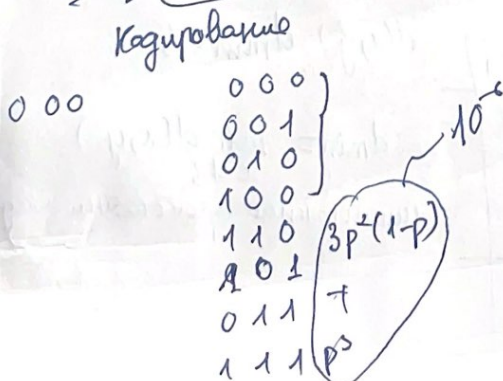 Кодирование
000
000
001
010
100
110 3p²(1-p)
101 +
011
111 p³
10⁻⁶